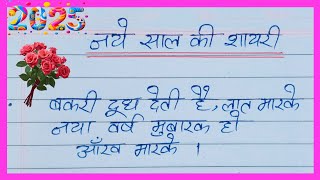 2025
नये साल की शायरी
बकरी दूध देती है, लात मारके
नया वर्ष मुबारक हो
आँख मारके ।